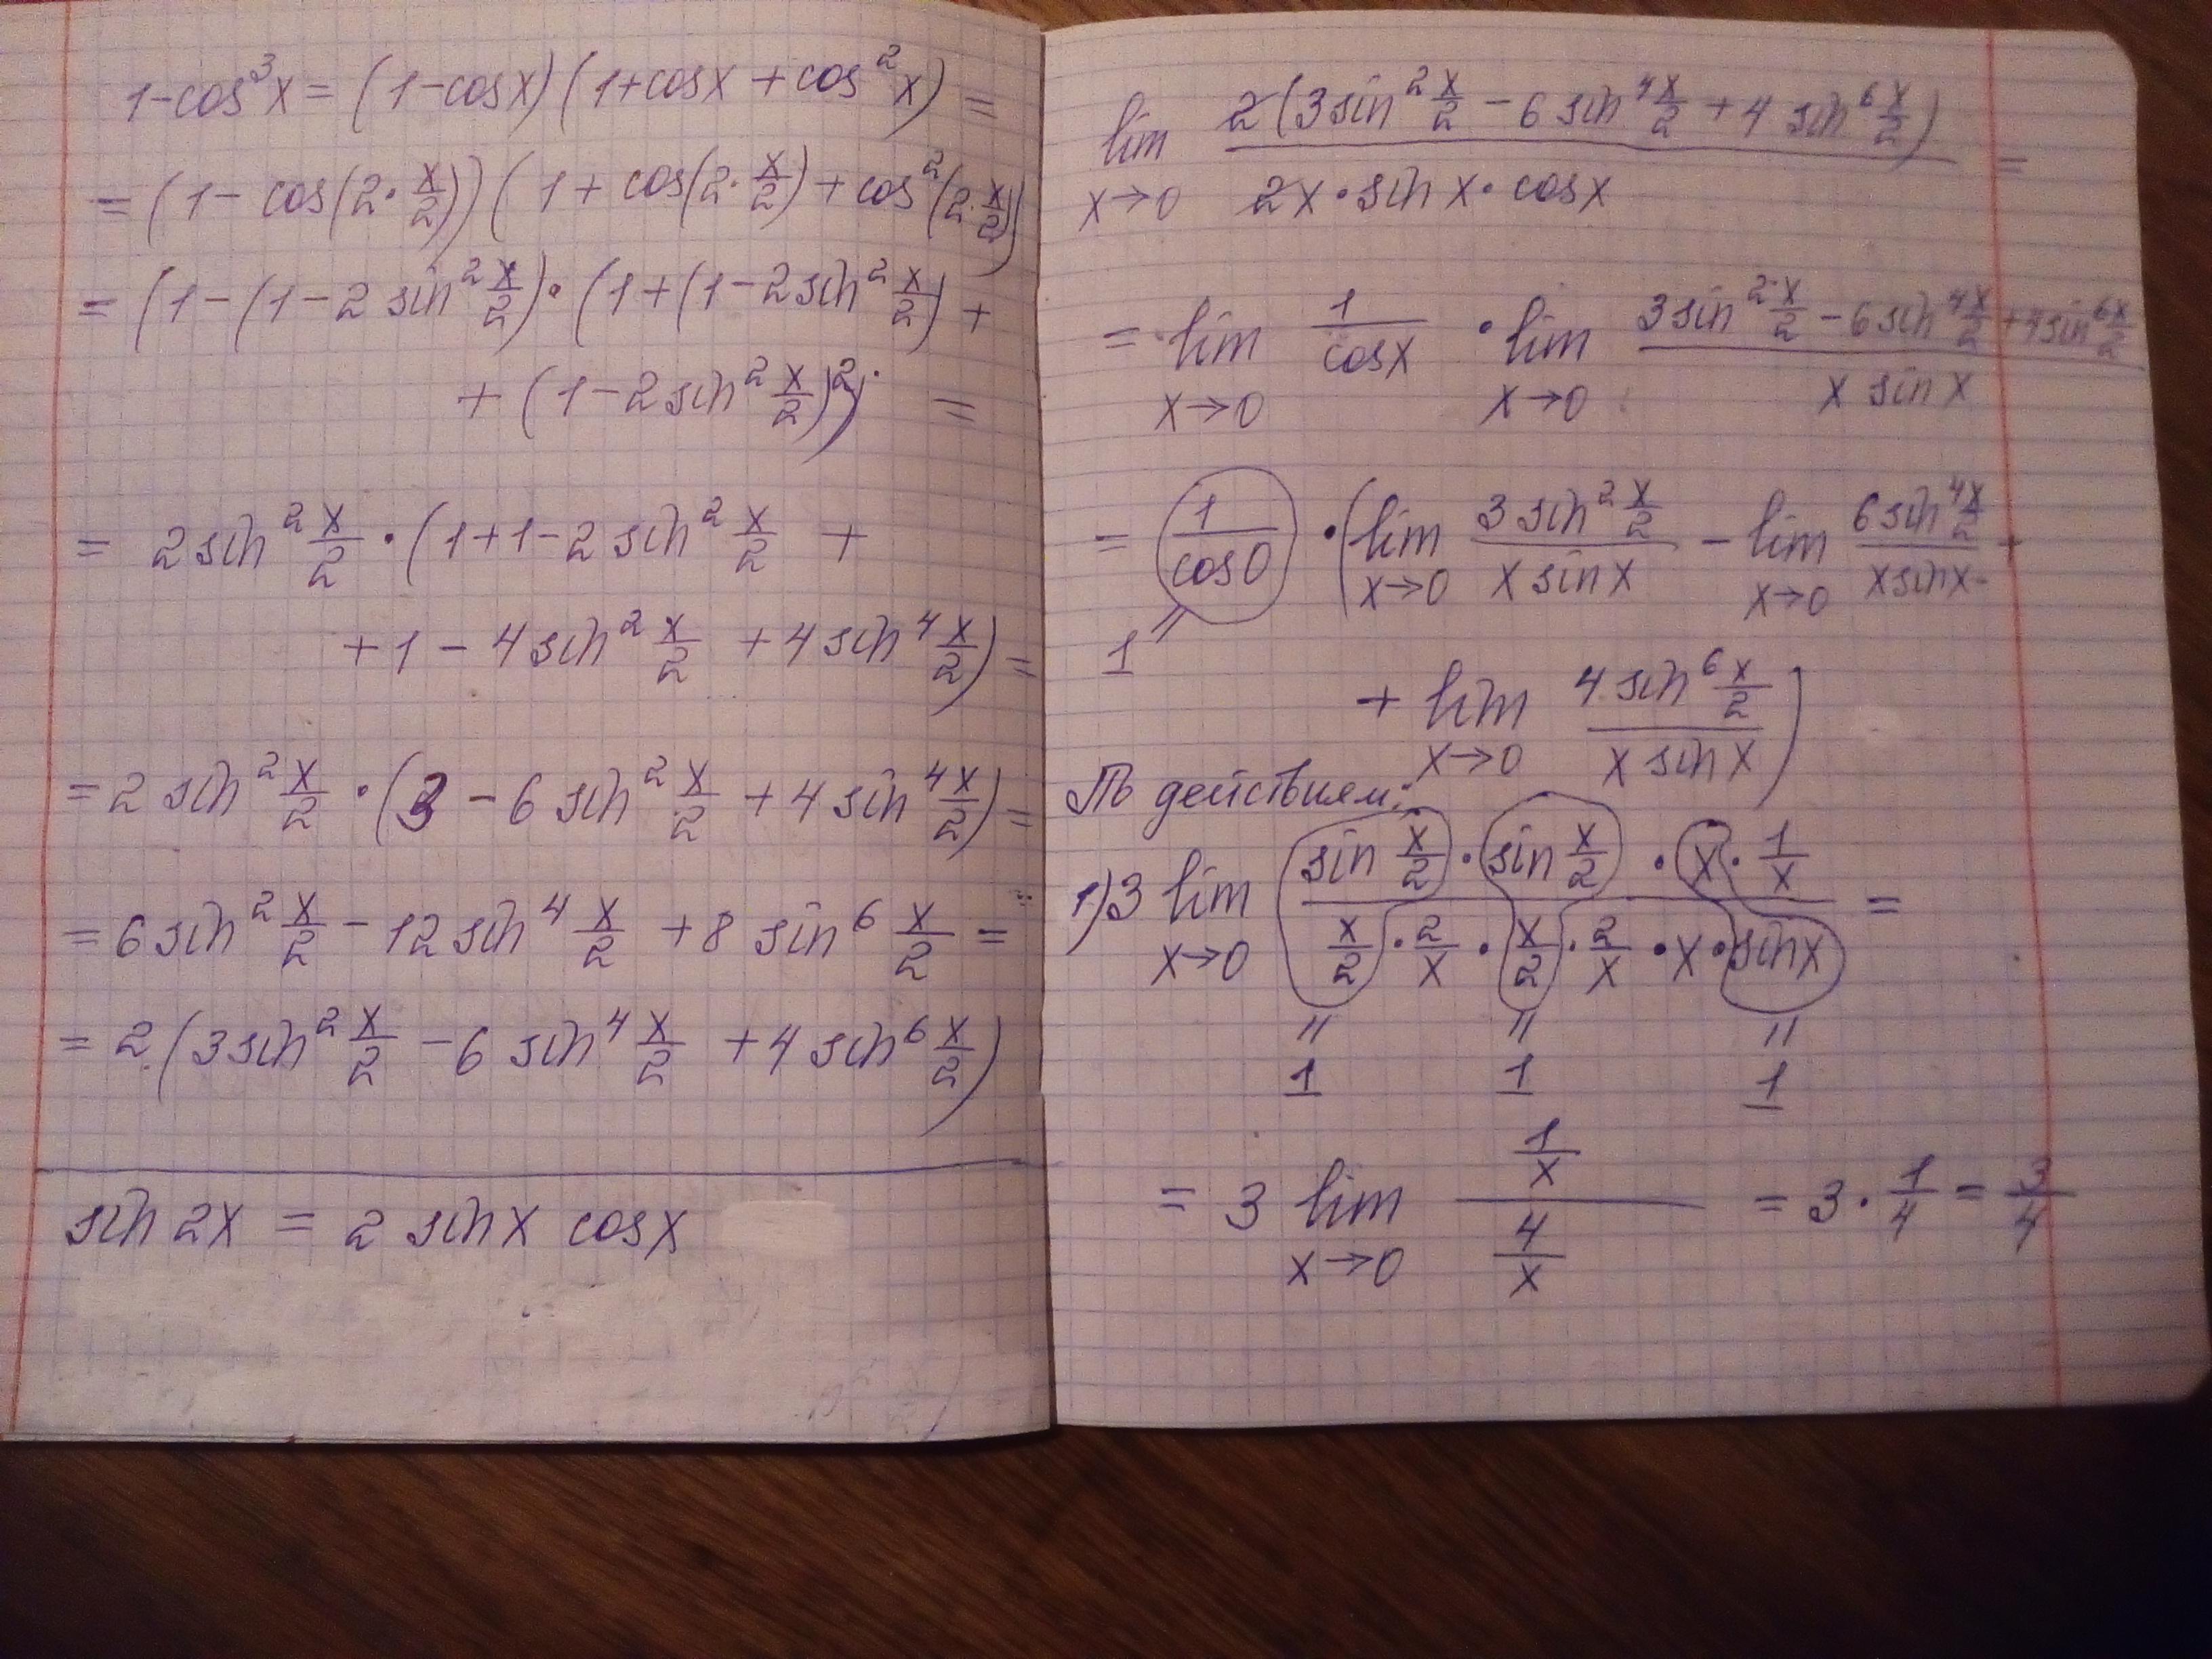 1-cos³x = (1-cosx)(1+cosx + cos²x) =
= (1 - cos(2·x/2))(1 + cos(2·x/2) + cos²(2·x/2))
= (1-(1-2 sin² x/2)·(1+(1-2sin² x/2) +
+ (1-2sin² x/2)²) =
= 2sin² x/2 · (1+1-2 sin² x/2 +
+ 1 - 4sin² x/2 + 4 sin⁴ x/2) =
= 2 sin² x/2 · (3 - 6 sin² x/2 + 4 sin⁴ x/2) =
= 6 sin² x/2 - 12 sin⁴ x/2 + 8 sin⁶ x/2 =
= 2(3sin² x/2 - 6 sin⁴ x/2 + 4 sin⁶ x/2)
sin 2x = 2 sinx cosx
lim x→0 2(3sin² x/2 - 6 sin⁴ x/2 + 4 sin⁶ x/2) / 2x · sin x · cosx =
= lim x→0 1/cosx · lim x→0 3sin² x/2 - 6sin⁴ x/2 + 4sin⁶ x/2 / x sin x
= 1/cos0 · (lim x→0 3sin² x/2 / x sinx - lim x→0 6sin⁴ x/2 / x sinx +
1
+ lim x→0 4 sin⁶ x/2 / x sinx)
По действиям:
1) 3 lim x→0 sin x/2 · sin x/2 · x · 1/x / x/2 · 2/x · x/2 · 2/x · x · sinx =
1 1 1
= 3 lim x→0 1/x / 4/x = 3 · 1/4 = 3/4